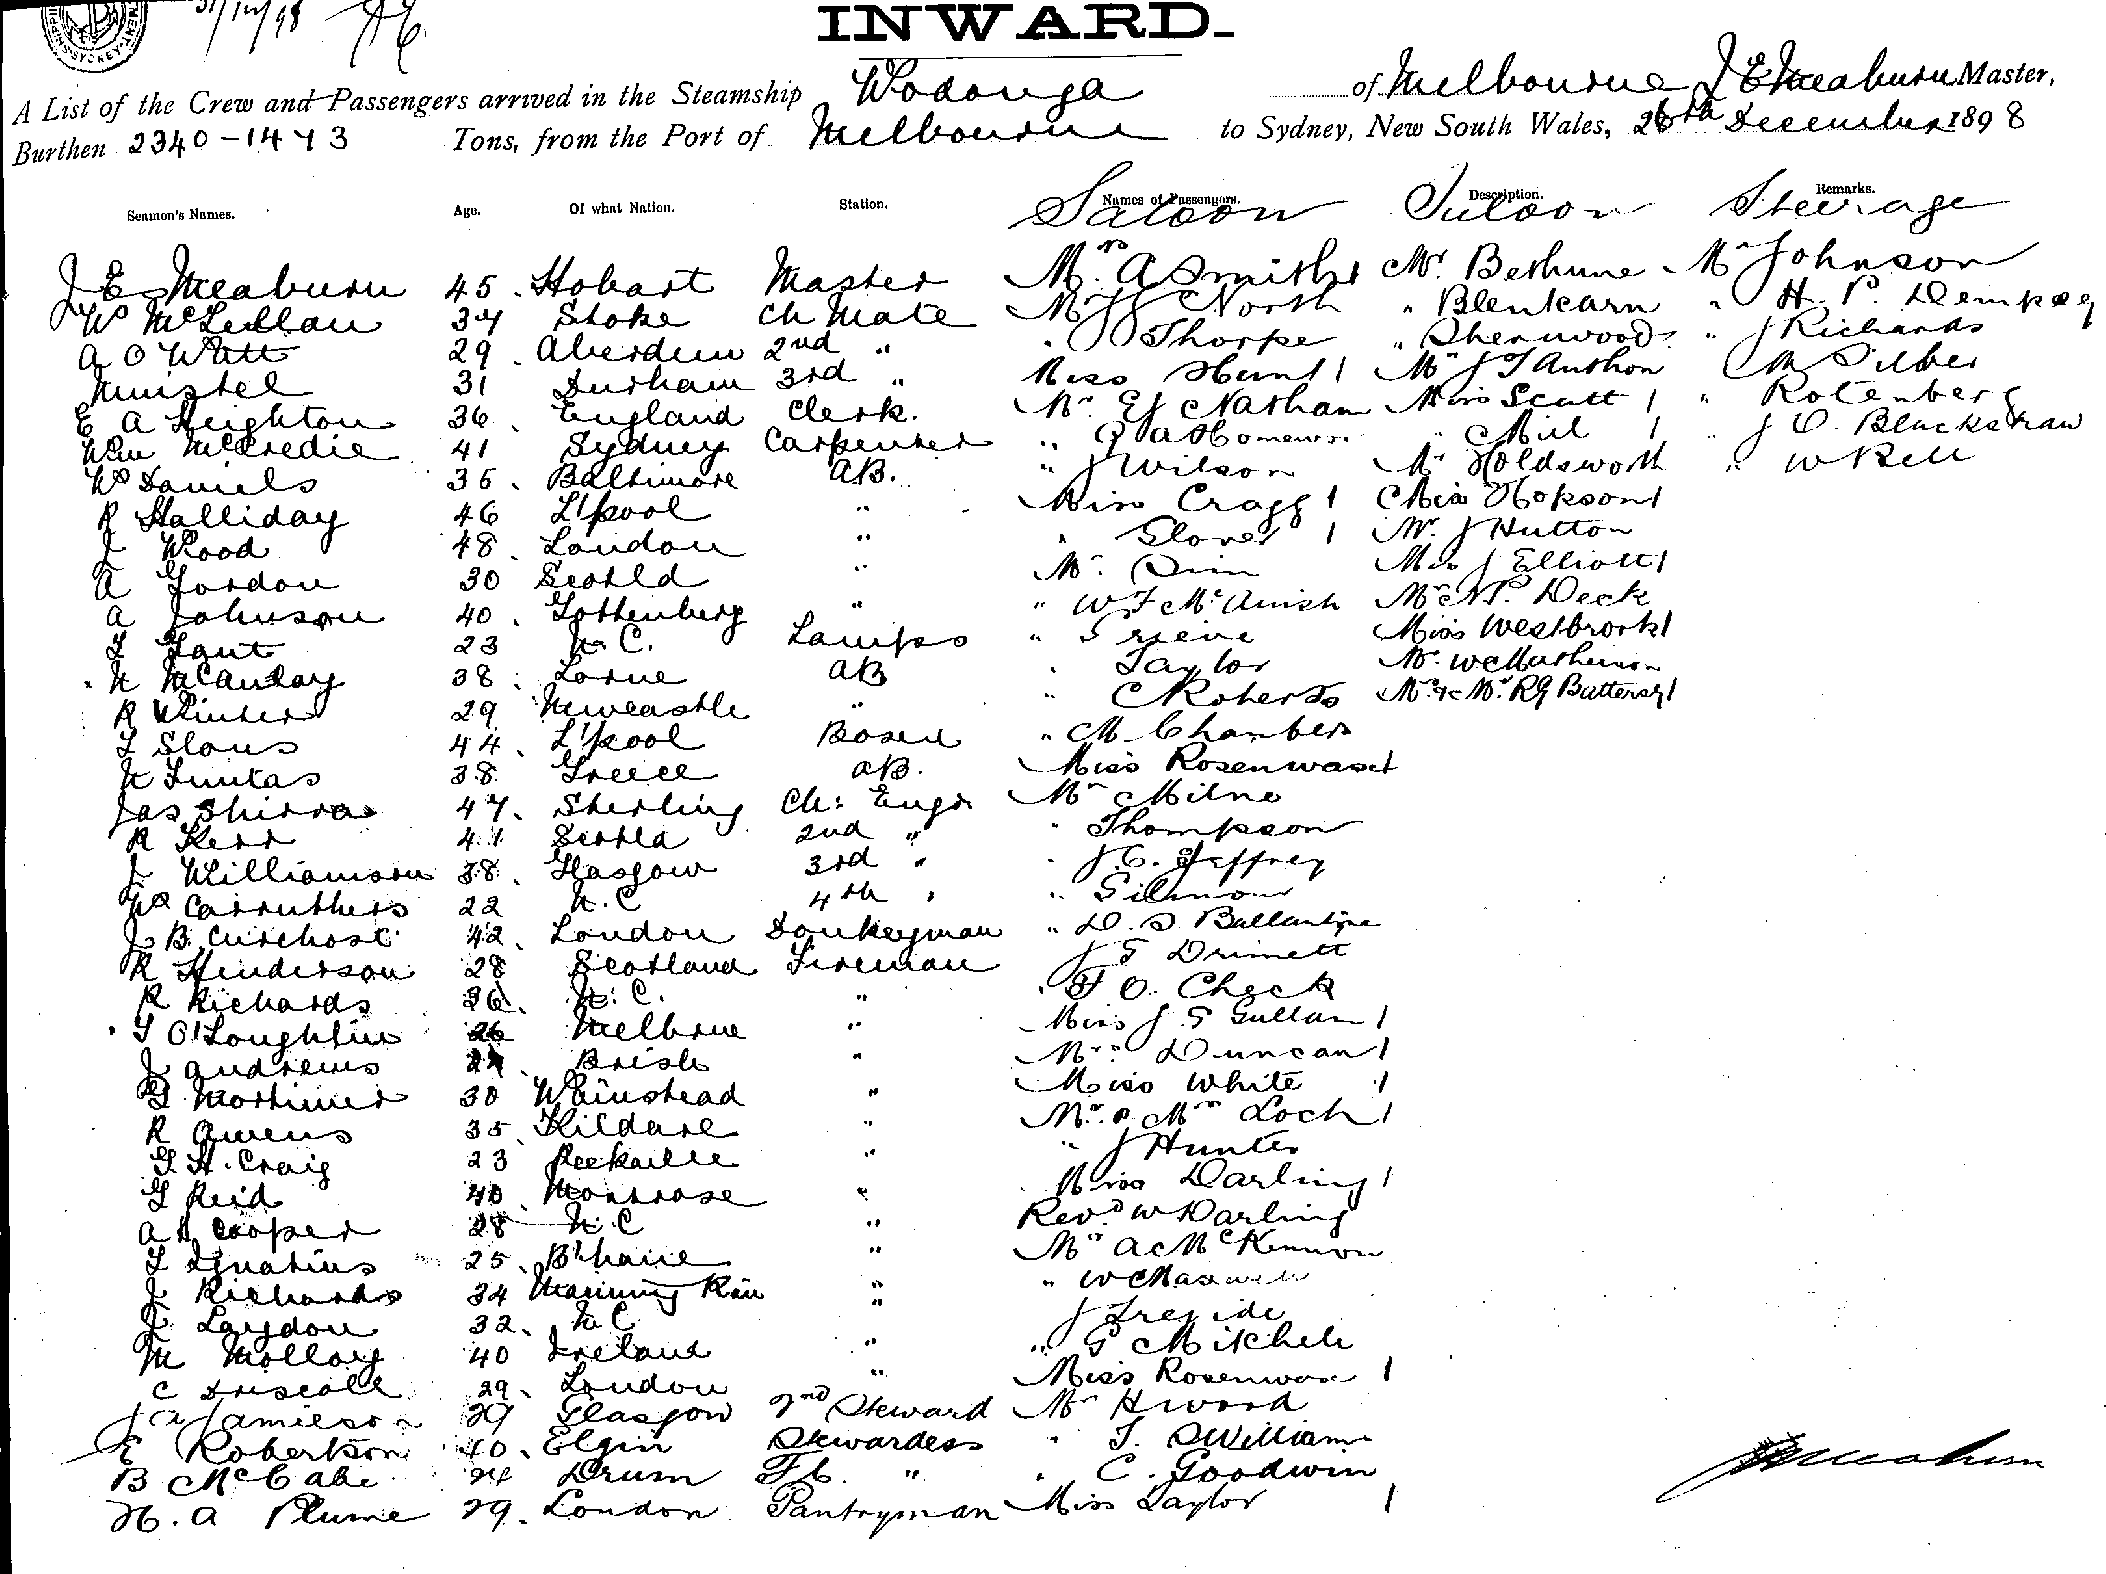 31/12/98
INWARD.
A List of the Crew and Passengers arrived in the Steamship Wodonga of Melbourne J E Meaburn Master,
Burthen 2340-1473 Tons, from the Port of Melbourne to Sydney, New South Wales, 26th December 1898
Seamen's Names. Age. Of what Nation. Station. Names of Passengers. Description. Remarks.
Saloon Saloon Steerage
J E Meaburn 45 Hobart Master Mrs A Smith 1 Mr. Bethune Mr Johnson
Ws McLellan 37 Stoke Ch Mate Mr North " Blenkarn " H. P. Dempsey
A O Watt 29 Aberdeen 2nd " " Thorpe " Sherwood " J Richards
Minstel 31 Durham 3rd " Miss Hunt 1 Mr J T Anthon M Silber
E A Heighton 36 England Clerk. Mr. E J Nathan Miss Scutt 1 " Rotenberg
Wm McCredie 41 Sydney Carpenter " " 1 " J C. Blackshaw
Ws Daniels 35 Baltimore AB. " J Wilson Mr Holdsworth " W Bell
R Halliday 46 L'pool " Miss Cragg 1 Miss Hopson 1
J Wood 48 London " " Glover 1 Mr. J Hutton
A Gordon 30 Scotld " Mr. Miss J Elliott 1
A Johnson 40 Gottenburg " " W F Mr N P. Deck
T Gaut 23 N. C. Lamps " Grieve Miss Westbrook 1
N McAulay 38 Lorne AB " Taylor Mr.
R Winter 29 Newcastle " " C Roberts Mr & Mrs R G Battersby 1
T Slous 44 L'pool Bosun " M Chambers
N Funtas 38 Greece AB. Miss Rosenwax 1
Jas Shirra 47 Sterling Ch: Engr Mr Milne
R Kerr 41 Scotld 2nd " " Thompson
J Williamson 38 Glasgow 3rd " " J C. Jeffrey
Ws Carruthers 22 N. C 4th " " Gilmour
J B 42 London Donkeyman " D. S Ballantyne
R Henderson 28 Scotland Fireman J G Drimett
R Richards 36 N. C. " " F O. Check
T O'Loughlin 26 Melbrne " Miss J. S Gullan 1
J Andrews Brisb " Mrs Duncan 1
G Mortimer 30 Whinstead " Miss White 1
R Owens 35 Kildare " Mr. & Mrs Loch 1
G H. Craig 23 " " J Hunter
G Reid 40 Montrose " Miss Darling 1
A H Cooper 28 N C " Revd. W Darling
T Ignatius 25 B'haven " Mr A McKinnon
J Richards 34 Manning Riv " " W Maxwell
J Laydon 32 N C " J
M Molloy 40 Ireland " " G Mitchell
C Driscoll 29 London " Miss Rosenwax 1
J A Jamieson 27 Glasgow 2nd Steward Mr H Wood
E Robertson 40 Elgin Stewardess " T. S William
B McCabe 24 Drum F C. " " C. Goodwin
H. A Plume 29 London Pantryman Miss Taylor 1
J E Meaburn